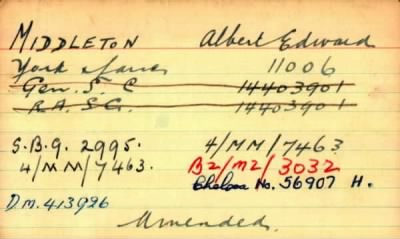 MIDDLETON Albert Edward
York & Lancs 11006
Gen. S. C 14403901
R.A.S.C. 14403901
S.B.9. 2995. 4/MM/7463
4/MM/7463. B2/M2/3032
Chelsea No. 56907 H.
D.M. 413926
Amended.